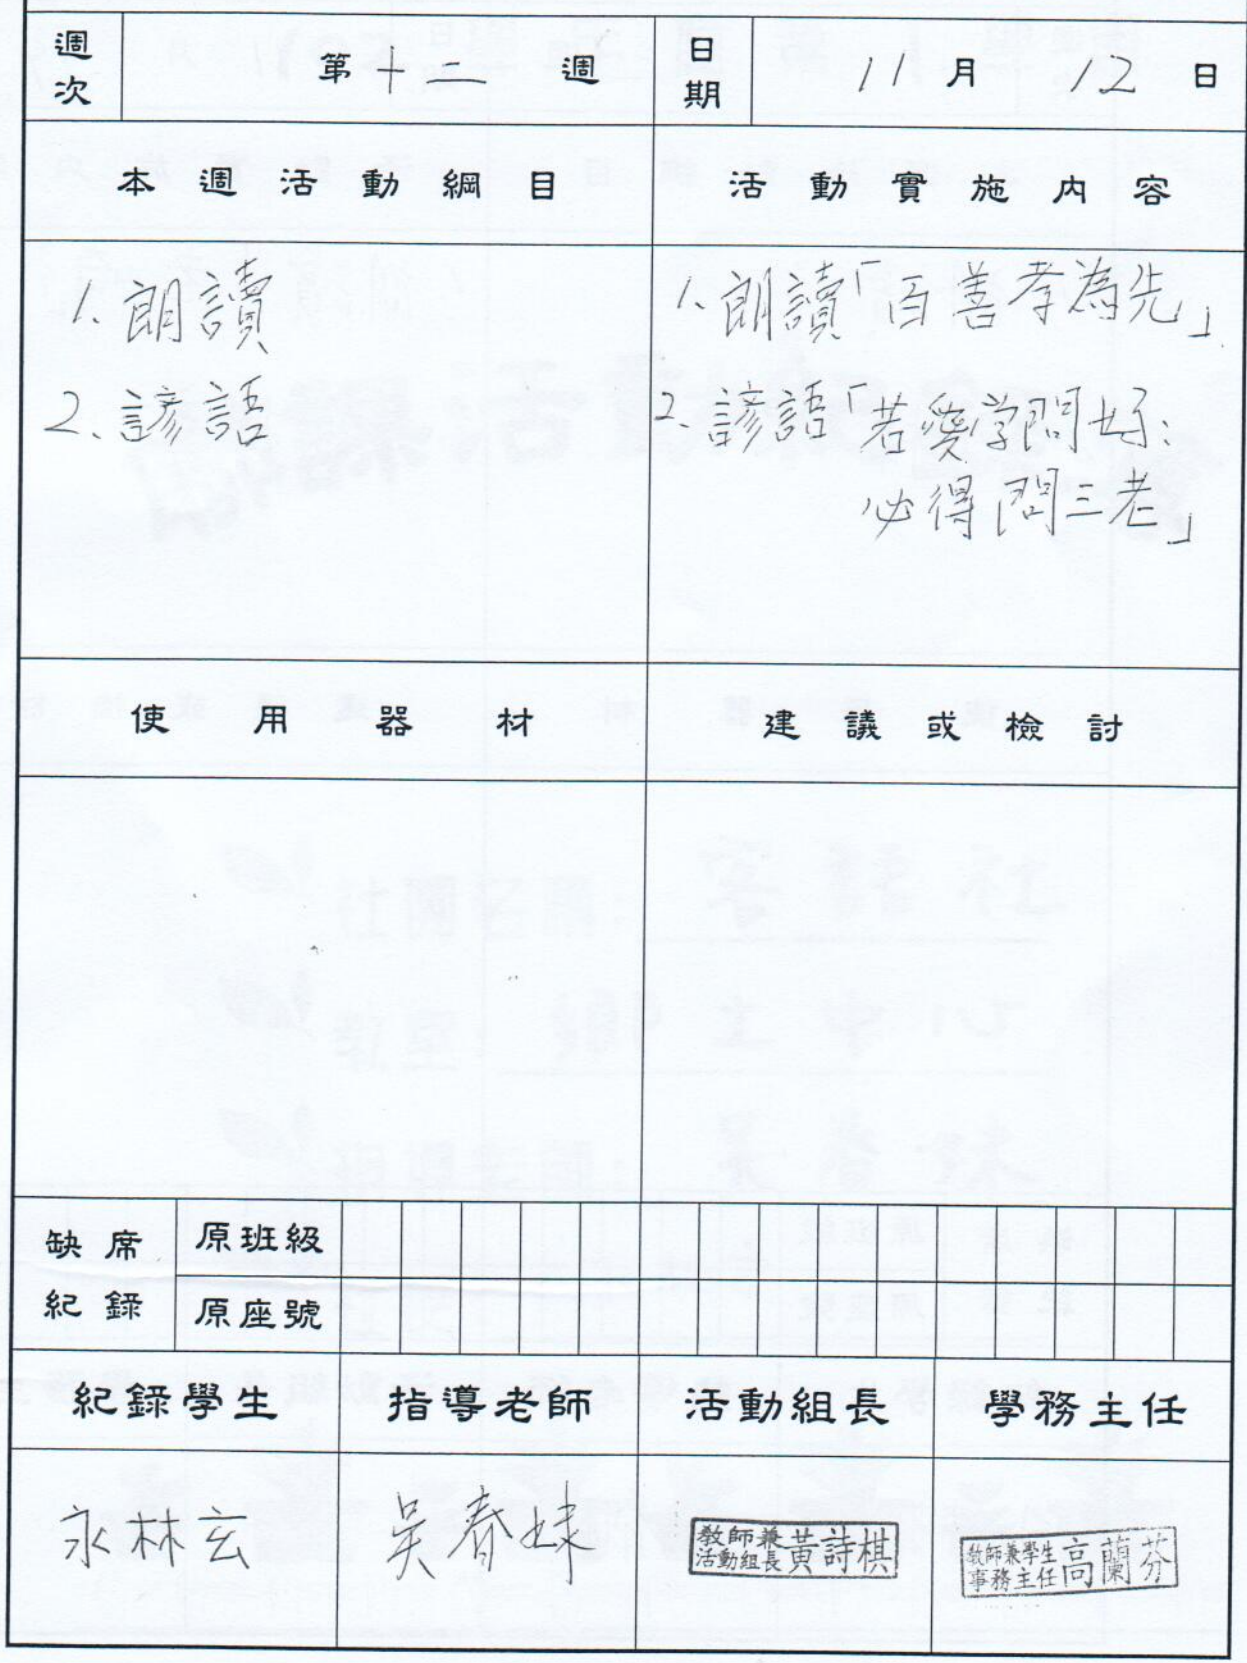 週次 第十二週 日期 11月12日
本週活動綱目 活動實施內容
1.朗讀
2.諺語
1.朗讀「百善孝為先」
2.諺語「若愛學問好:
必得問三老」
使用器材 建議或檢討
缺席紀錄 原班級
原座號
紀錄學生 指導老師 活動組長 學務主任
林玄 吳春
教師兼活動組長 黃詩棋
教師兼學生事務主任 高蘭芬